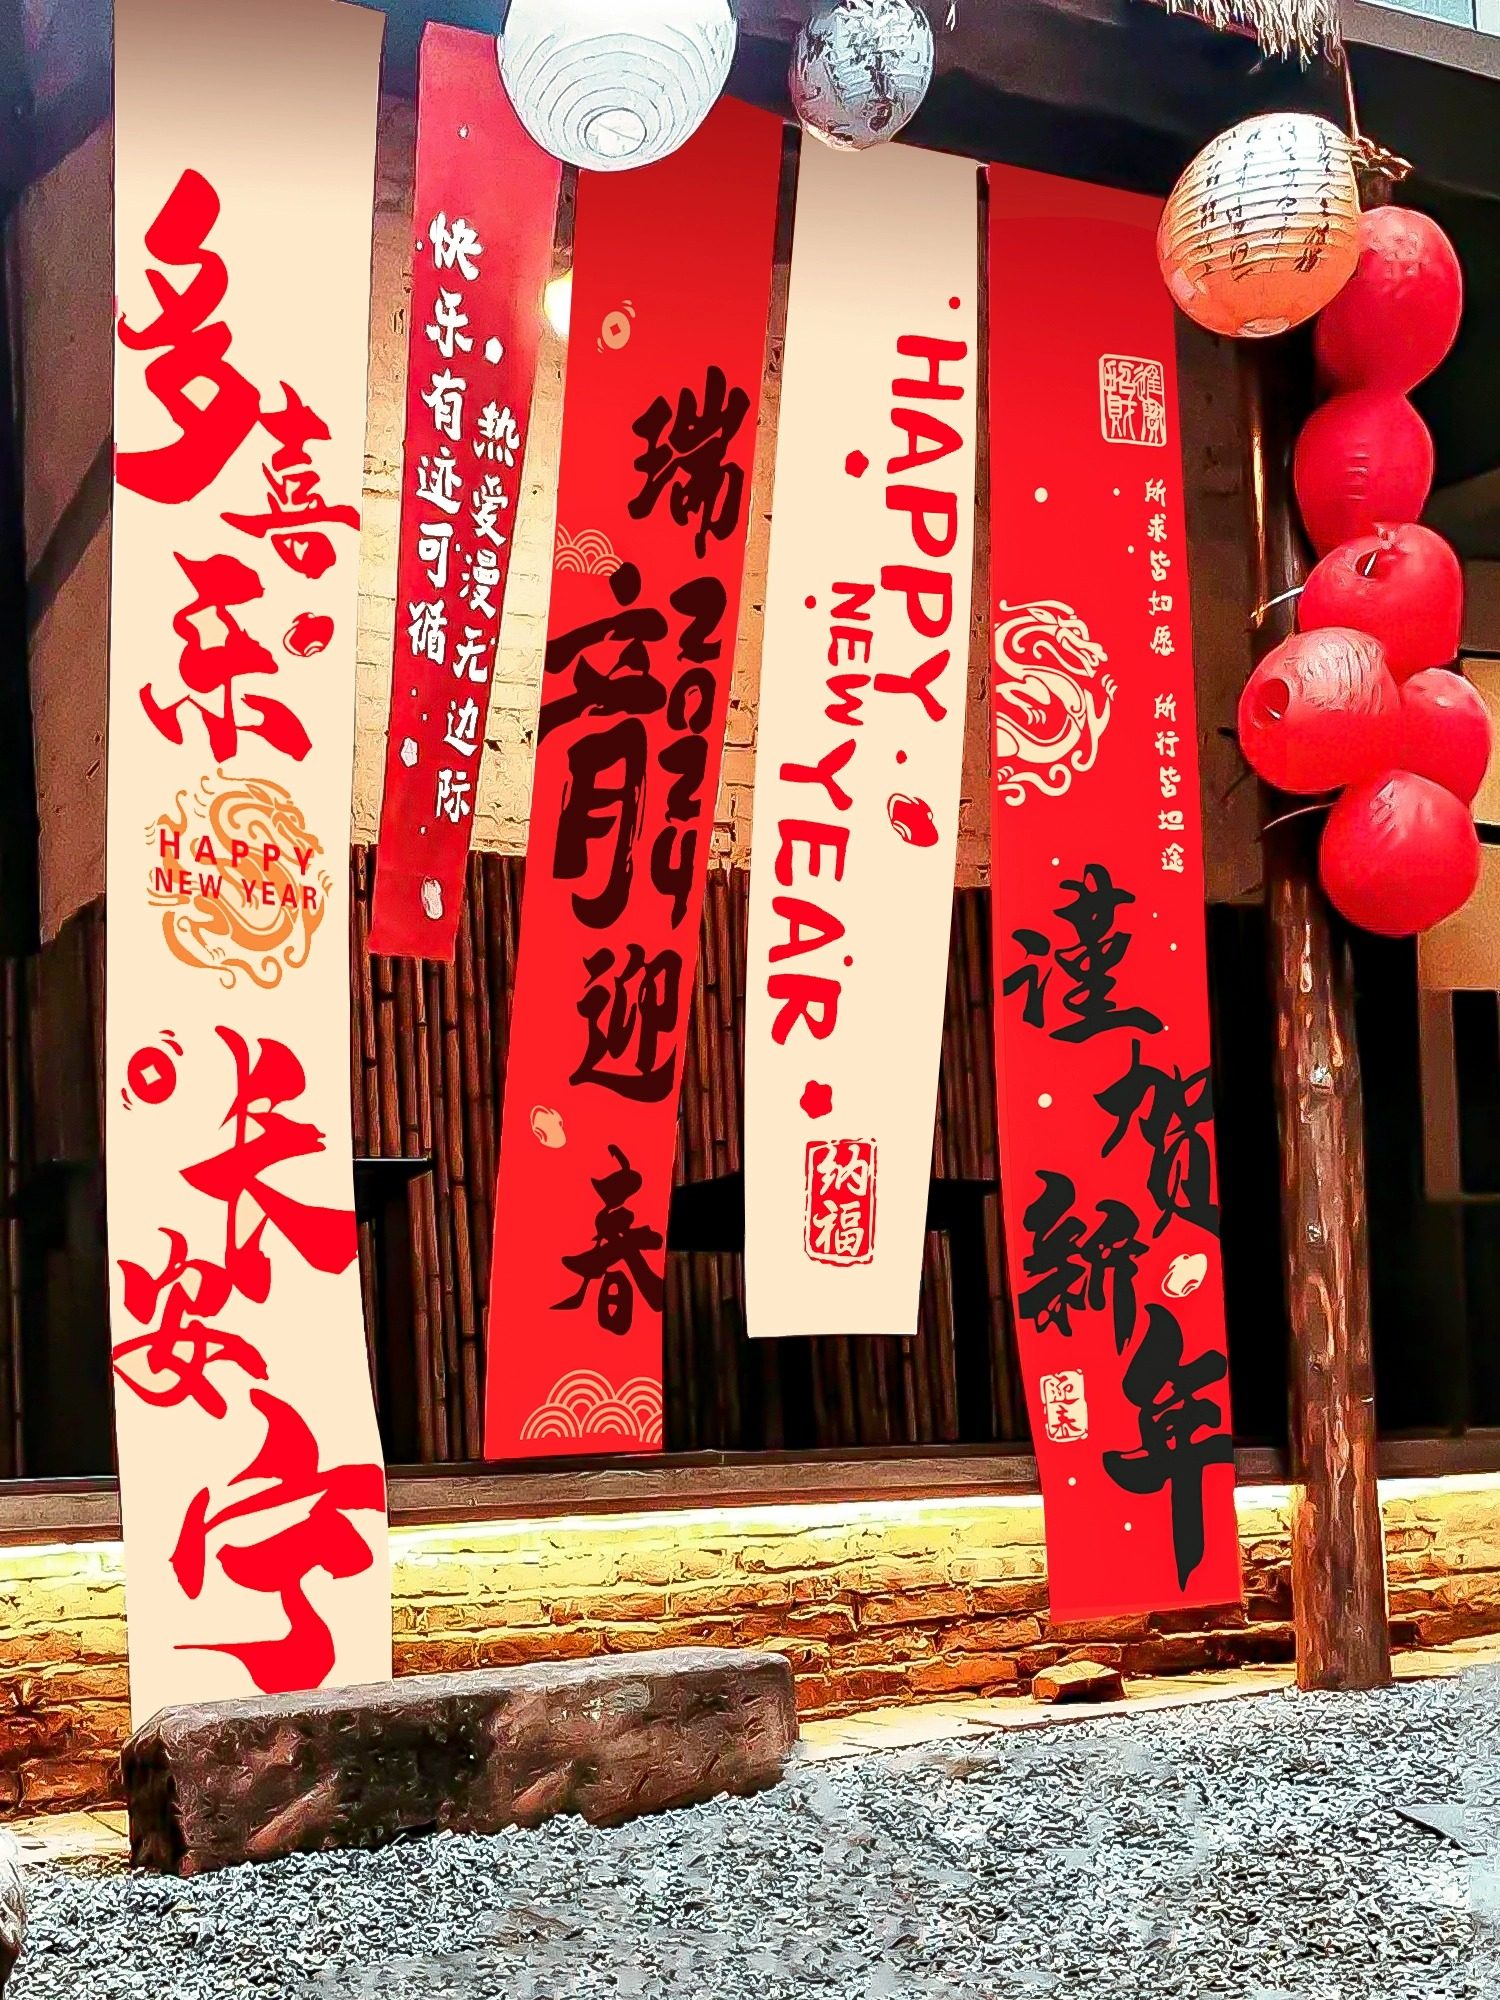 多喜乐
HAPPY
NEW YEAR
长安宁
快乐有迹可循
热爱漫无边际
瑞龍迎春
2024
HAPPY
NEW
YEAR
纳福
招财
進寶
所求皆如愿 所行皆坦途
谨贺新年
迎春